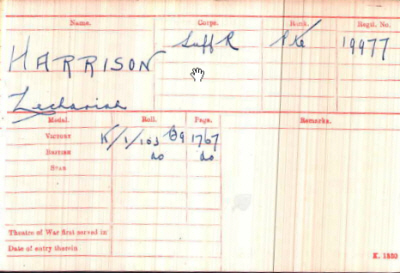 Name. Corps. Rank. Regtl. No.
HARRISON Suff R Pte 19977
Zechariah
Medal. Roll. Page. Remarks.
Victory K/1/103 B9 1767
British do do
Star
Theatre of War first served in
Date of entry therein
K. 1380